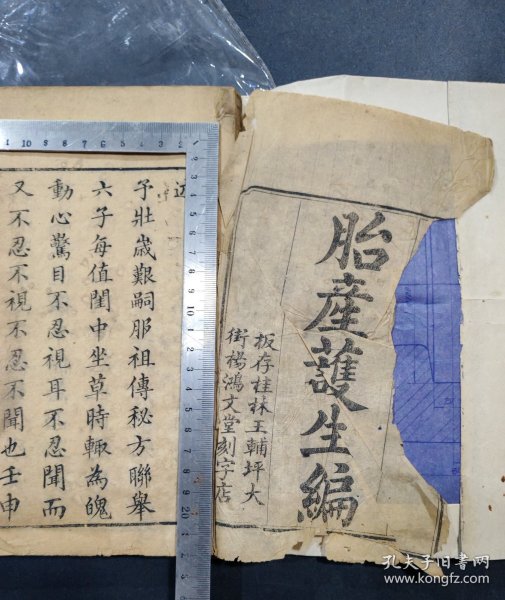 胎產護生編
板存桂林王輔坪大
街楊鴻文堂刻字店
予壯歲艱嗣服祖傳秘方聯舉
六子每值閨中坐草時輙為魄
動心驚目不忍視耳不忍聞而
又不忍不視不忍不聞也壬申
孔夫子旧书网
www.kongfz.com